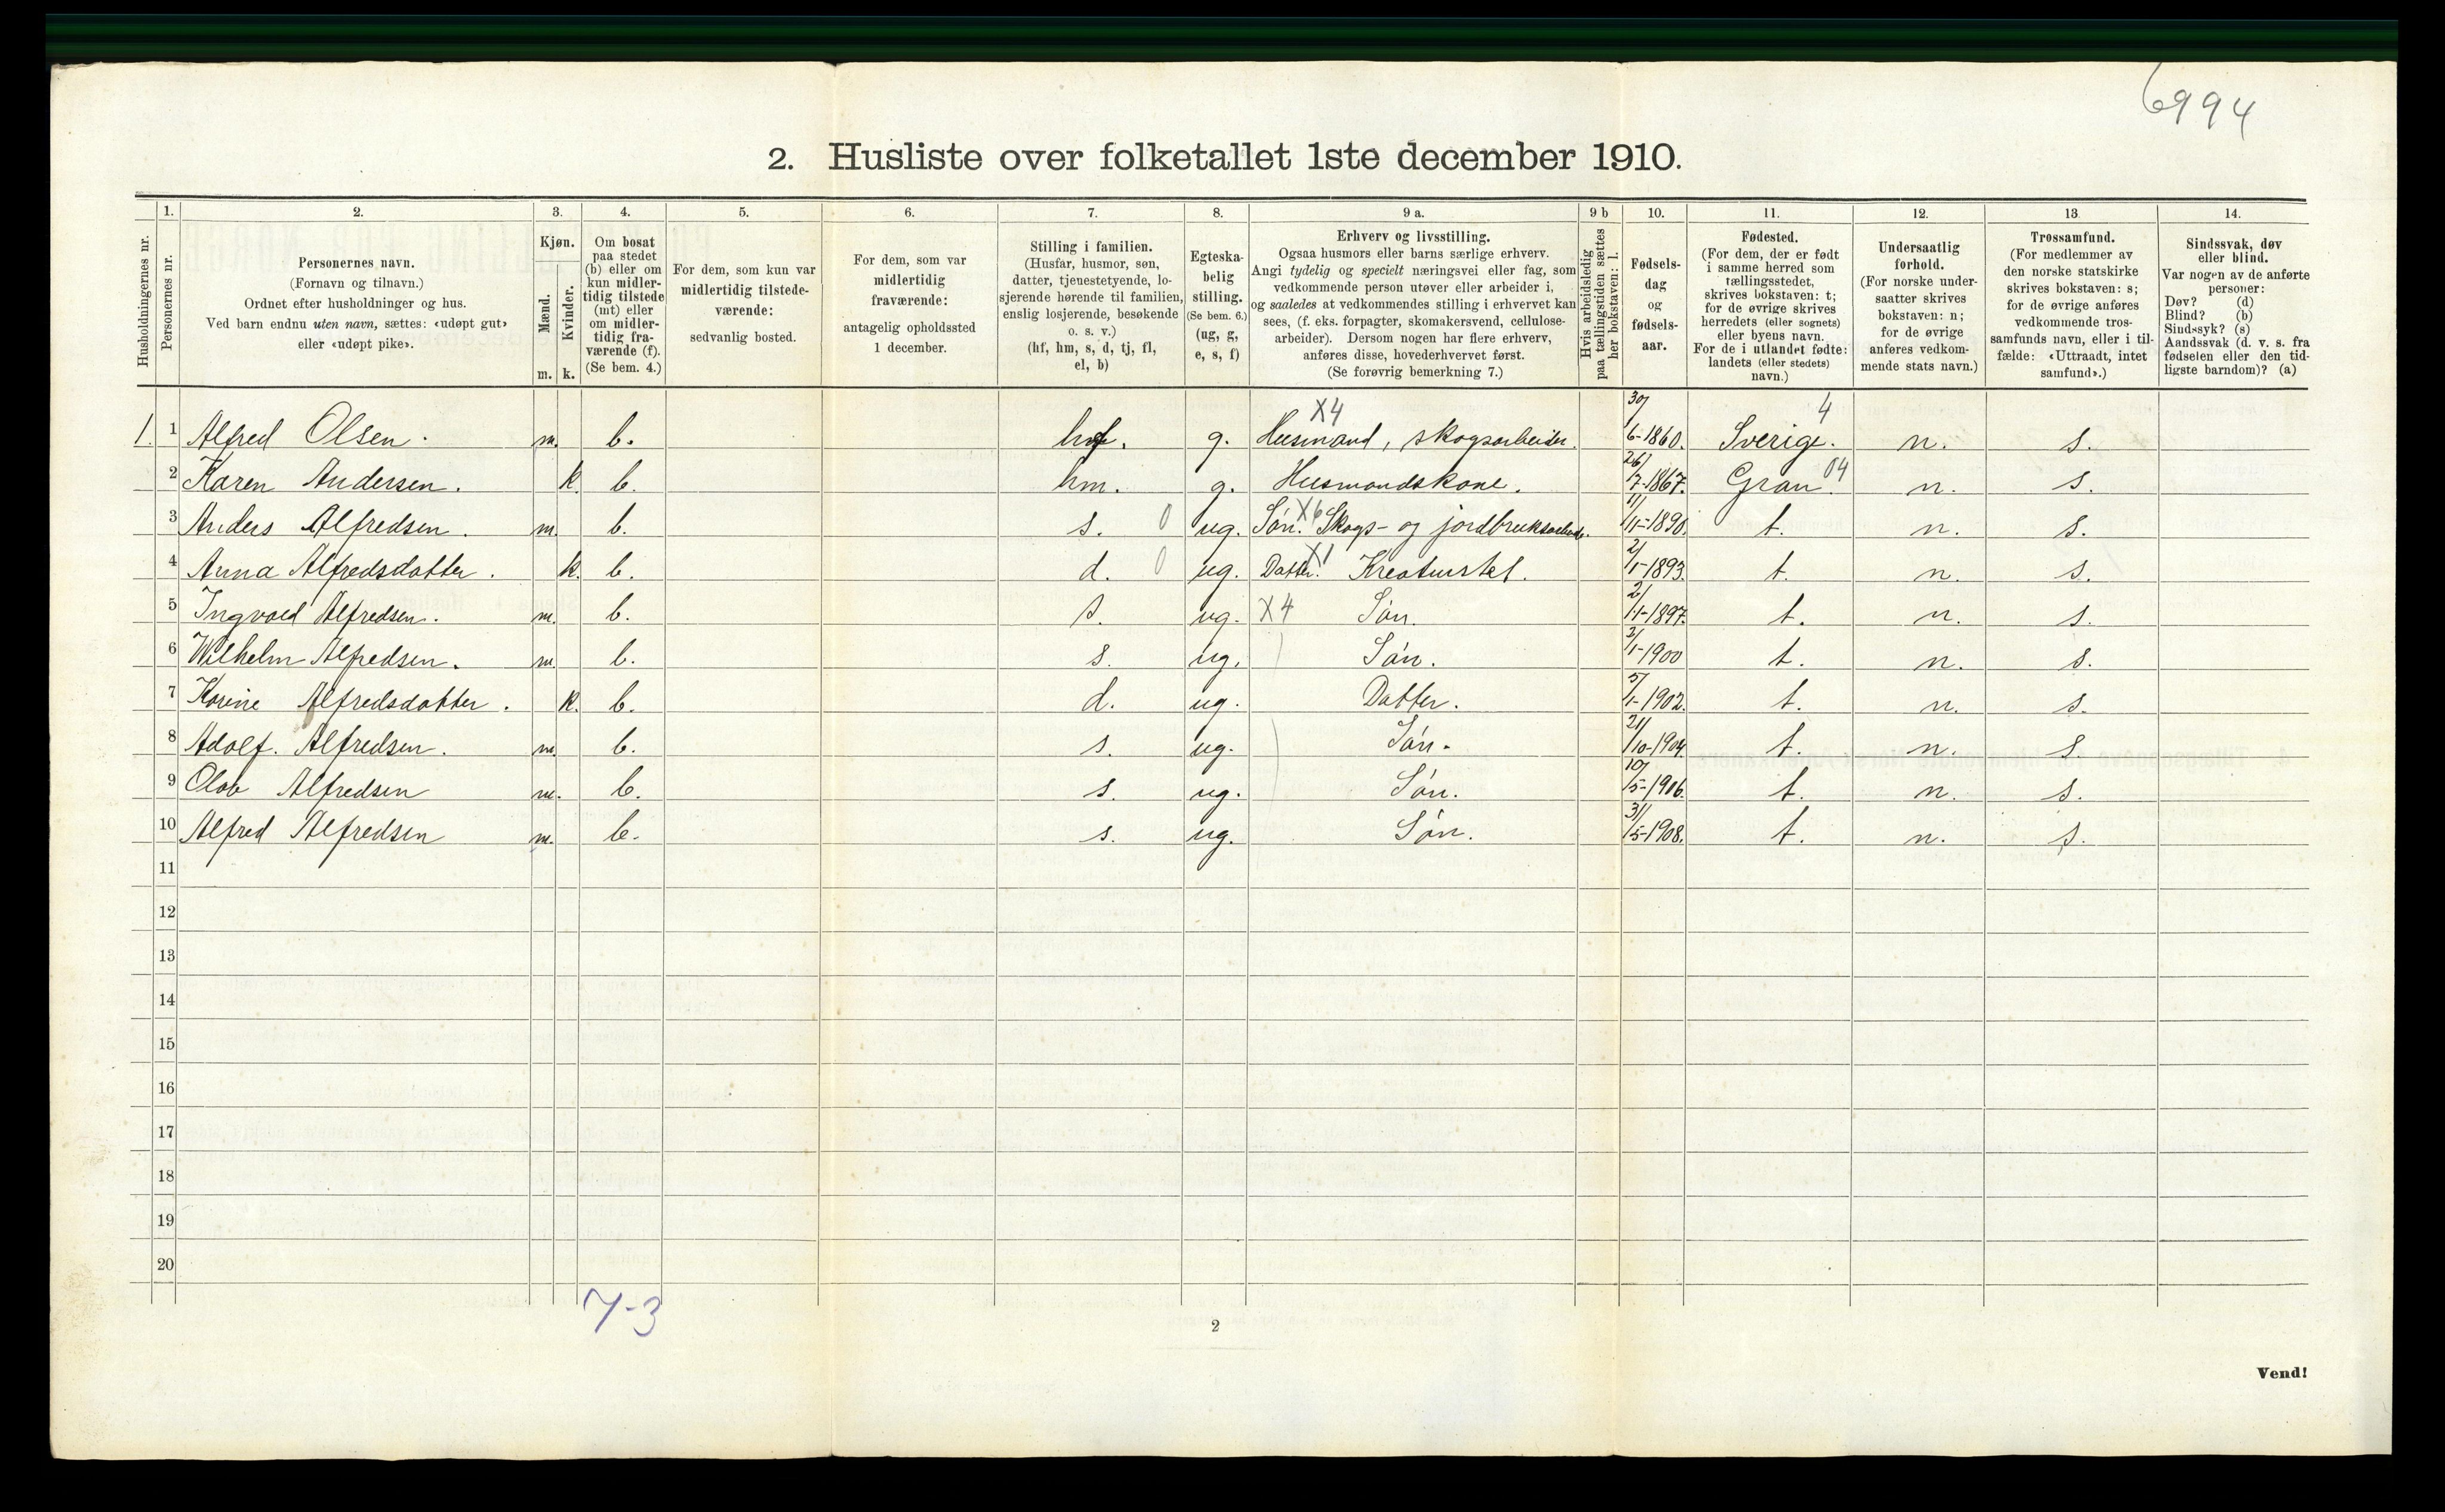 6994
2. Husliste over folketallet 1ste december 1910.
Husholdningernes nr.
1.
Personernes nr.
2.
Personernes navn.
(Fornavn og tilnavn.)
Ordnet efter husholdninger og hus.
Ved barn endnu uten navn, sættes: «udøpt gut»
eller «udøpt pike».
3.
Kjøn.
Mænd.
Kvinder.
m. k.
4.
Om bosat
paa stedet
(b) eller om
kun midler-
tidig tilstede
(mt) eller
om midler-
tidig fra-
værende (f).
(Se bem. 4.)
5.
For dem, som kun var
midlertidig tilstede-
værende:
sedvanlig bosted.
6.
For dem, som var
midlertidig
fraværende:
antagelig opholdssted
1 december.
7.
Stilling i familien.
(Husfar, husmor, søn,
datter, tjenestetyende, lo-
sjerende hørende til familien,
enslig losjerende, besøkende
o. s. v.)
(hf, hm, s, d, tj, fl,
el, b)
8.
Egteska-
belig
stilling.
(Se bem. 6.)
(ug, g,
e, s, f)
9 a.
Erhverv og livsstilling.
Ogsaa husmors eller barns særlige erhverv.
Angi tydelig og specielt næringsvei eller fag, som
vedkommende person utøver eller arbeider i,
og saaledes at vedkommendes stilling i erhvervet kan
sees, (f. eks. forpagter, skomakersvend, cellulose-
arbeider). Dersom nogen har flere erhverv,
anføres disse, hovederhvervet først.
(Se forøvrig bemerkning 7.)
9 b
Hvis arbeidsledig
paa tællingstiden sættes
her bokstaven: l.
10.
Fødsels-
dag
og
fødsels-
aar.
11.
Fødested.
(For dem, der er født
i samme herred som
tællingsstedet,
skrives bokstaven: t;
for de øvrige skrives
herredets (eller sognets)
eller byens navn.
For de i utlandet fødte:
landets (eller stedets)
navn.)
12.
Undersaatlig
forhold.
(For norske under-
saatter skrives
bokstaven: n;
for de øvrige
anføres vedkom-
mende stats navn.)
13.
Trossamfund.
(For medlemmer av
den norske statskirke
skrives bokstaven: s;
for de øvrige anføres
vedkommende tros-
samfunds navn, eller i til-
fælde: «Uttraadt, intet
samfund».)
14.
Sindssvak, døv
eller blind.
Var nogen av de anførte
personer:
Døv? (d)
Blind? (b)
Sindssyk? (s)
Aandssvak (d. v. s. fra
fødselen eller den tid-
ligste barndom)? (a)
1. 1 Alfred Olsen. m. b. hf. g. X4 Husmand, skogsarbeider. 30/6-1860. Sverige. 4 n. s.
2 Karen Andersen. k. b. hm. g. Husmandskone. 26/7-1867. Gran. 04 n. s.
3 Anders Alfredsen. m. b. s. 0 ug. Søn. X6 Skogs- og jordbruksarbeide. 11/11-1890. t. n. s.
4 Anna Alfredsdatter. k. b. d. 0 ug. Datter. X1 Kreaturstel. 2/1-1893. t. n. s.
5 Ingvald Alfredsen. m. b. s. ug. X4 Søn. 2/11-1897. t. n. s.
6 Wilhelm Alfredsen. m. b. s. ug. Søn. 2/1-1900 t. n. s.
7 Karine Alfredsdatter. k. b. d. ug. Datter. 5/1-1902. t. n. s.
8 Adolf. Alfredsen. m. b. s. ug. Søn. 21/10-1904. t. n. s.
9 Olav Alfredsen m. b. s. ug. Søn. 10/5-1906. t. n. s.
10 Alfred Alfredsen m. b. s. ug. Søn. 31/5-1908. t. n. s.
11
12
13
14
15
16
17
18
19
20
7-3
2
Vend!